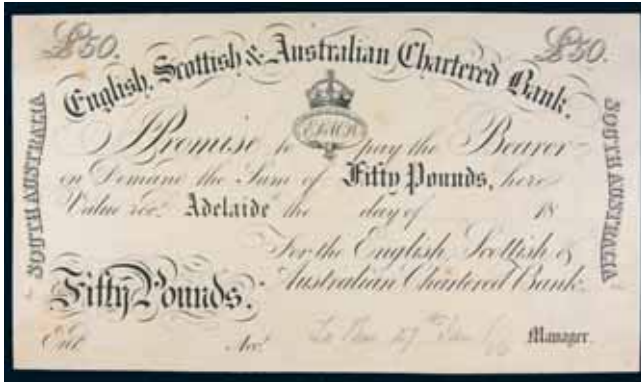 £50. £50.
English, Scottish & Australian Chartered Bank.
SOUTH AUSTRALIA
I Promise to pay the Bearer
on Demand the Sum of Fifty Pounds, here
Value recd. Adelaide the day of 18
For the English, Scottish &
Australian Chartered Bank.
Fifty Pounds.
Entd. Acct. Manager.
SOUTH AUSTRALIA